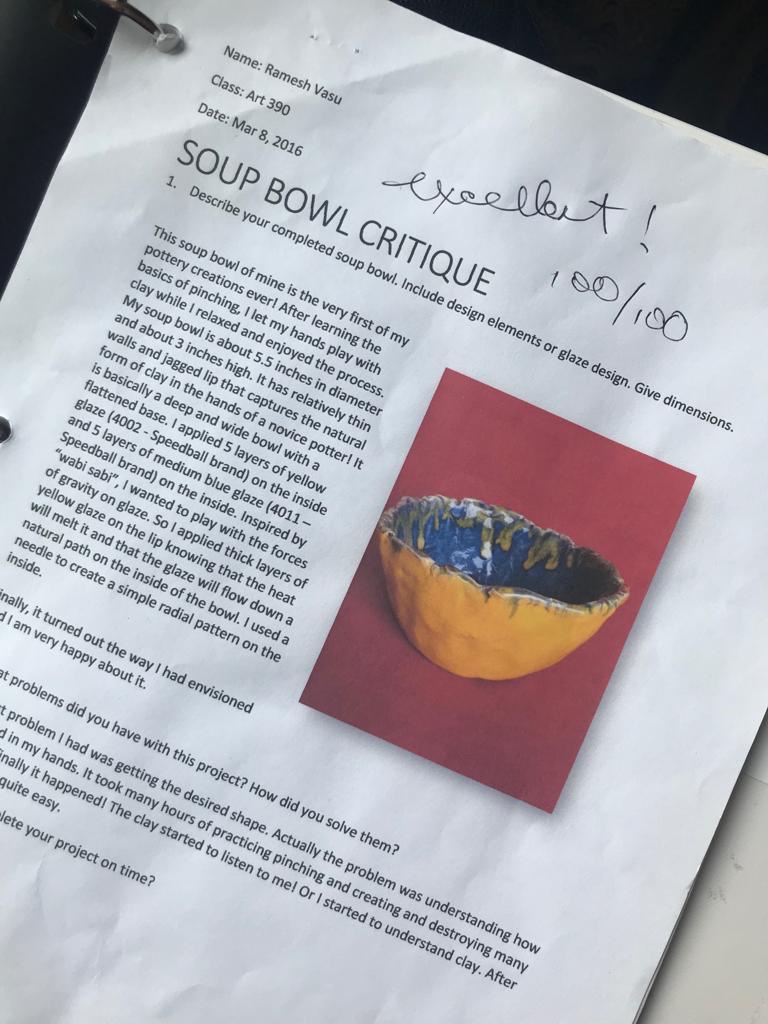 Name: Ramesh Vasu
Class: Art 390
Date: Mar 8, 2016
excellent!
100/100
SOUP BOWL CRITIQUE
1. Describe your completed soup bowl. Include design elements or glaze design. Give dimensions.
This soup bowl of mine is the very first of my
pottery creations ever! After learning the
basics of pinching, I let my hands play with
clay while I relaxed and enjoyed the process.
My soup bowl is about 5.5 inches in diameter
and about 3 inches high. It has relatively thin
walls and jagged lip that captures the natural
form of clay in the hands of a novice potter! It
is basically a deep and wide bowl with a
flattened base. I applied 5 layers of yellow
glaze (4002 - Speedball brand) on the inside
and 5 layers of medium blue glaze (4011 –
Speedball brand) on the inside. Inspired by
"wabi sabi", I wanted to play with the forces
of gravity on glaze. So I applied thick layers of
yellow glaze on the lip knowing that the heat
will melt it and that the glaze will flow down a
natural path on the inside of the bowl. I used a
needle to create a simple radial pattern on the
inside.
inally, it turned out the way I had envisioned
d I am very happy about it.
at problems did you have with this project? How did you solve them?
t problem I had was getting the desired shape. Actually the problem was understanding how
d in my hands. It took many hours of practicing pinching and creating and destroying many
inally it happened! The clay started to listen to me! Or I started to understand clay. After
quite easy.
lete your project on time?